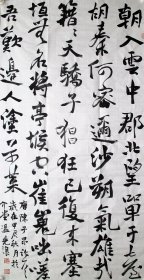 朝入雲中郡北望單于臺
胡秦何密邇沙朔氣雄哉
籍籍天驕子猖狂已復来塞
垣无名將亭堠空崔嵬咄嗟
吾歎邊人塗草萊
唐陳子昂詩
秋月於